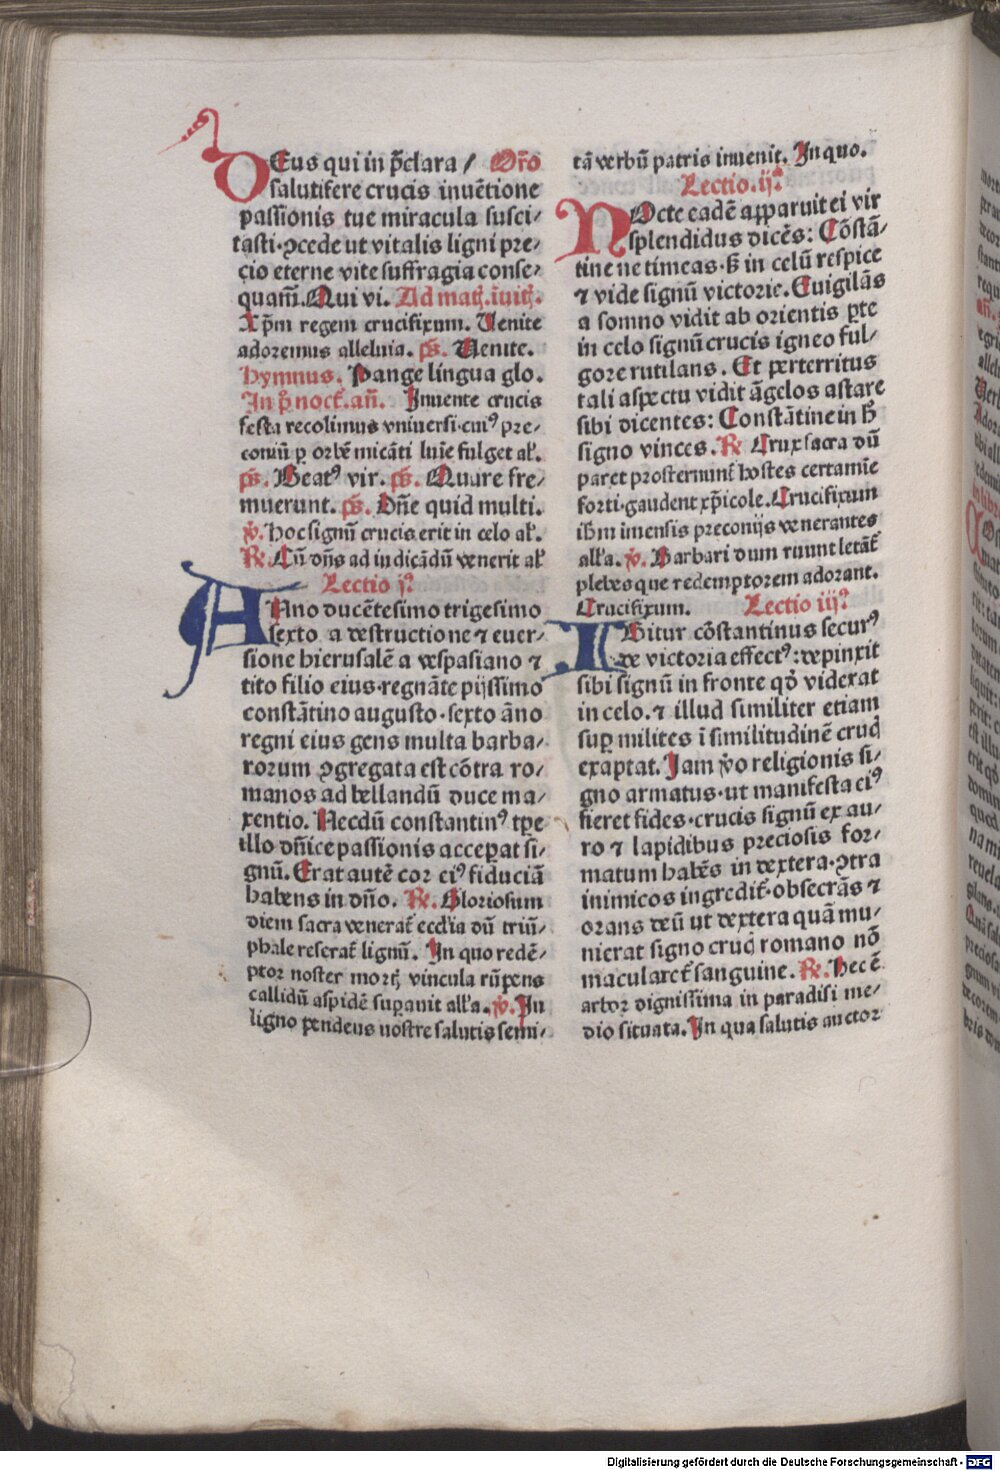 DEus qui in p̄clara / Or̄o
salutifere crucis inuētione
passionis tue miracula susci⸗
tasti·ꝯcede ut vitalis ligni pre⸗
cio eterne vite suffragia conse⸗
quam̄. Qui vi. Ad mat̄. īuit̄.
Xp̄m regem crucifixum. Venite
adoremus alleluia. ps̄. Venite.
Hymnus. Pange lingua glo.
In p̄ noct̄. an̄. Inuente crucis
festa recolimus vniuersi·cuiꝰ pre⸗
coniū ꝑ orbē micāti lūie fulget al'.
ps̄. Beatꝰ vir. ps̄. Quare fre⸗
muerunt. ps̄. Dn̄e quid multi.
℣. Hoc signū crucis erit in celo al'.
℟. Cū dn̄s ad iudicādū venerit al'
Lectio jꝰ
ANno ducētesimo trigesimo
sexto a destructione ⁊ euer⸗
sione hierusalē a vespasiano ⁊
tito filio eius·regnāte pijssimo
constātino augusto·sexto āno
regni eius gens multa barba⸗
rorum ꝯgregata est cōtra ro⸗
manos ad bellandū duce ma⸗
xentio. Necdū constantinꝰ tp̄e
illo dn̄ice passionis acceꝑat si⸗
gnū. Erat autē cor eiꝰ fiduciā
habens in dn̄o. ℟. Gloriosum
diem sacra venerat̄ eccl'ia dū triū⸗
phale reserat̄ lignū. In quo redē⸗
ptor noster mort̄ vincula rūpens
callidū aspidē suꝑauit all'a. ℣. In
ligno pendens nostre salutis semi⸗
tā verbū patris inuenit. In quo.
Lectio. ijꝰ
NOcte eadē apparuit ei vir
splendidus dicēs: Cōstā⸗
tine ne timeas·s̄ in celū respice
⁊ vide signū victorie. Euigilās
a somno vidit ab orientis ꝑte
in celo signū crucis igneo ful⸗
gore rutilans. Et perterritus
tali aspectu vidit āgelos astare
sibi dicentes: Constātine in h̄
signo vinces. ℟. Crux sacra dū
paret prosternunt̄ hostes certamīe
forti·gaudent xp̄icole. Crucifixum
ih̄m imensis preconijs venerantes
all'a. ℣. Barbari dum ruunt letāt̄
plebes que redemptorem adorant.
Crucifixum. Lectio iijꝰ
IGitur cōstantinus securꝰ
de victoria effectꝰ: depinxit
sibi signū in fronte qd̄ viderat
in celo. ⁊ illud similiter etiam
suꝑ milites ī similitudinē cruc̄
exaptat. Iam v̄o religionis si⸗
gno armatus·ut manifesta eiꝰ
fieret fides·crucis signū ex au⸗
ro ⁊ lapidibus preciosis for⸗
matum habēs in dextera·ꝯtra
inimicos ingredit̄·obsecrās ⁊
orans deū ut dextera quā mu⸗
nierat signo cruc̄ romano nō
macularet̄ sanguine. ℟. Hec ē
arbor dignissima in paradisi me⸗
dio situata. In qua salutis auctor
Digitalisierung gefördert durch die Deutsche Forschungsgemeinschaft - DFG